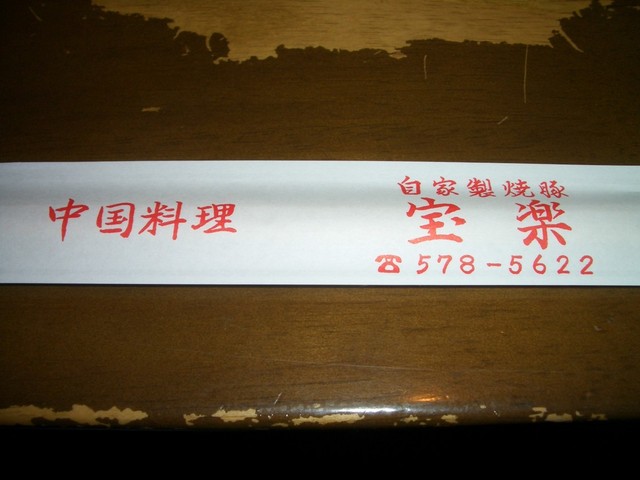 中国料理
自家製焼豚
宝楽
☎578-5622